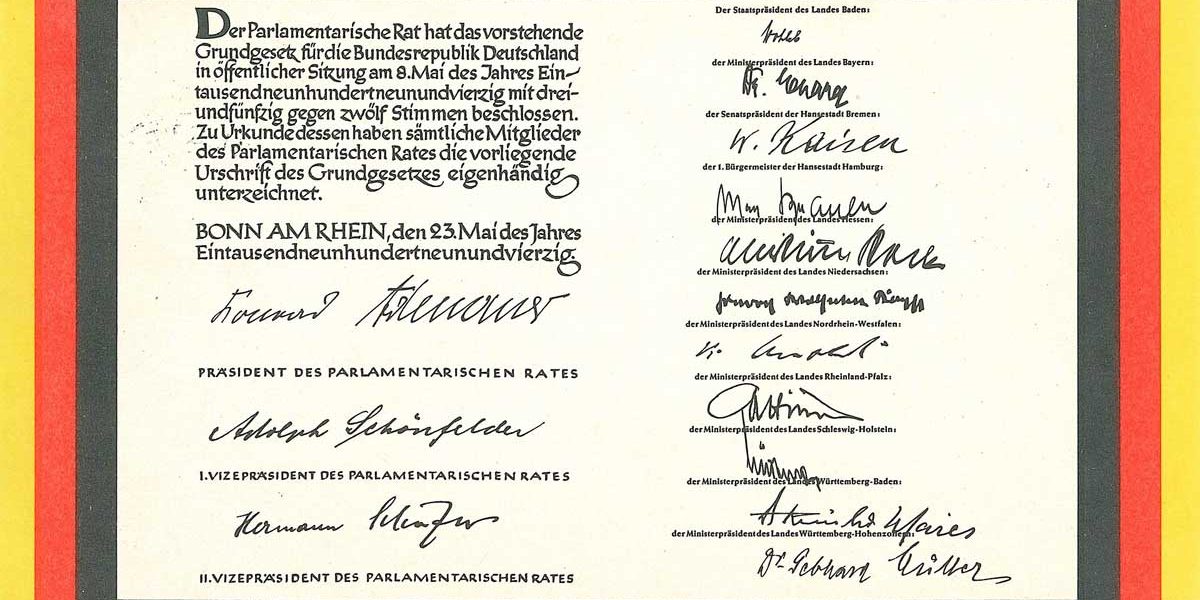 Der Parlamentarische Rat hat das vorstehende
Grundgesetz für die Bundesrepublik Deutschland
in öffentlicher Sitzung am 8. Mai des Jahres Ein-
tausendneunhundertneunundvierzig mit drei-
undfünfzig gegen zwölf Stimmen beschlossen.
Zu Urkunde dessen haben sämtliche Mitglieder
des Parlamentarischen Rates die vorliegende
Urschrift des Grundgesetzes eigenhändig
unterzeichnet.
BONN AM RHEIN, den 23. Mai des Jahres
Eintausendneunhundertneunundvierzig.
Konrad Adenauer
PRÄSIDENT DES PARLAMENTARISCHEN RATES
Adolph Schönfelder
I. VIZEPRÄSIDENT DES PARLAMENTARISCHEN RATES
Hermann Schäfer
II. VIZEPRÄSIDENT DES PARLAMENTARISCHEN RATES
Der Staatspräsident des Landes Baden:
der Ministerpräsident des Landes Bayern:
Dr. Ehard
der Senatspräsident der Hansestadt Bremen:
W. Kaisen
der 1. Bürgermeister der Hansestadt Hamburg:
Max Brauer
der Ministerpräsident des Landes Hessen:
Christian Stock
der Ministerpräsident des Landes Niedersachsen:
der Ministerpräsident des Landes Nordrhein-Westfalen:
K. Arnold
der Ministerpräsident des Landes Rheinland-Pfalz:
Altmeier
der Ministerpräsident des Landes Schleswig-Holstein:
der Ministerpräsident des Landes Württemberg-Baden:
Reinhold Maier
der Ministerpräsident des Landes Württemberg-Hohenzollern:
Dr. Gebhard Müller